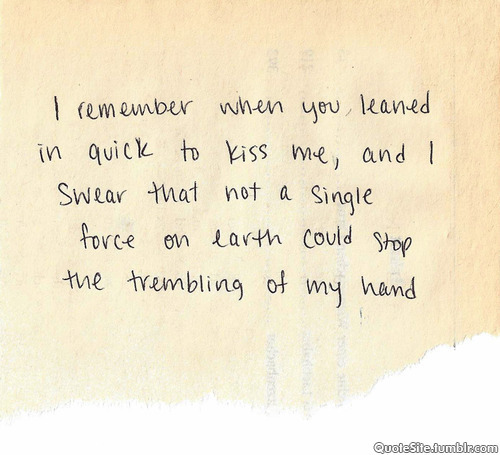 I remember when you leaned
in quick to kiss me, and I
swear that not a single
force on earth could stop
the trembling of my hand
QuoteSite.tumblr.com